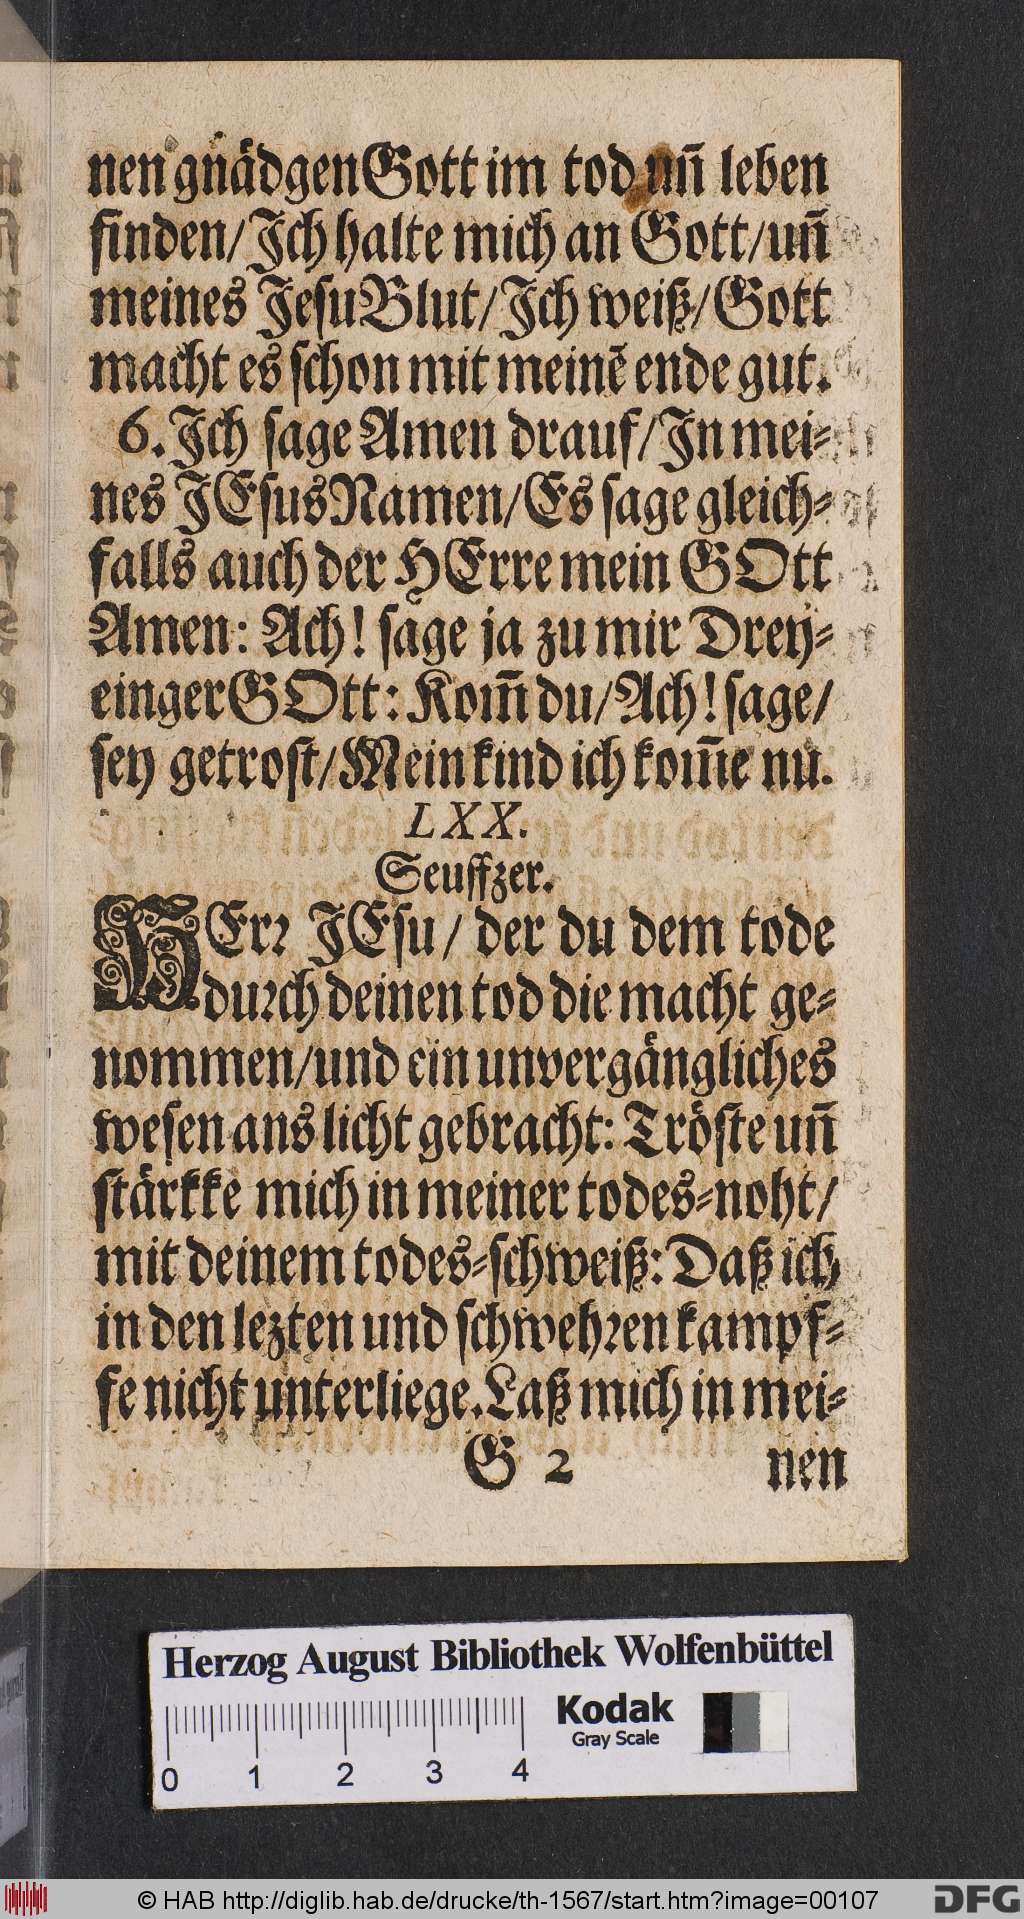 nen gnädgen Gott im tod uñ leben
finden/ Ich halte mich an Gott/ uñ
meines Jesu Blut/ Ich weiß/ Gott
macht es schon mit meinē ende gut.
6. Ich sage Amen drauf/ In mei-
nes JEsus Namen/ Es sage gleich-
falls auch der HErre mein GOtt
Amen: Ach! sage ja zu mir Drey-
einger GOtt: Kom̃ du/ Ach! sage/
sey getrost/ Mein kind ich kom̃e nu.
LXX.
Seuffzer.
HErꝛ JEsu/ der du dem tode
durch deinen tod die macht ge-
nommen/ und ein unvergängliches
wesen ans licht gebracht: Tröste uñ
stärkke mich in meiner todes-noht/
mit deinem todes-schweiß: Daß ich
in den lezten und schwehren kampf-
fe nicht unterliege. Laß mich in mei-
G 2 nen
Herzog August Bibliothek Wolfenbüttel
Kodak
Gray Scale
0 1 2 3 4
© HAB http://diglib.hab.de/drucke/th-1567/start.htm?image=00107
DFG